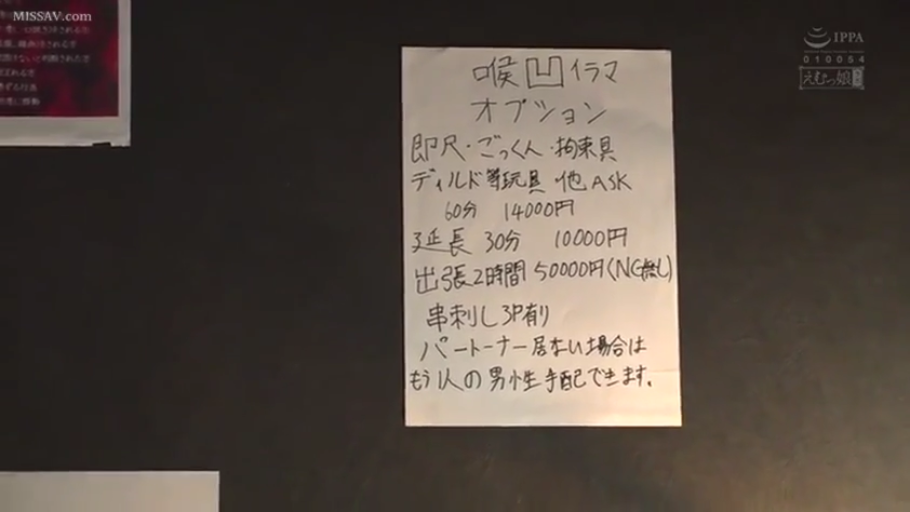 MISSAV.com
IPPA
010054
えむっ娘
喉凹イラマ
オプション
即尺・ごっくん・拘束具
ディルド等玩具 他 ASK
60分 14000円
延長 30分 10000円
出張2時間 50000円(NG無し)
串刺し3P有り
パートーナー居ない場合は
もう1人の男性手配できます。